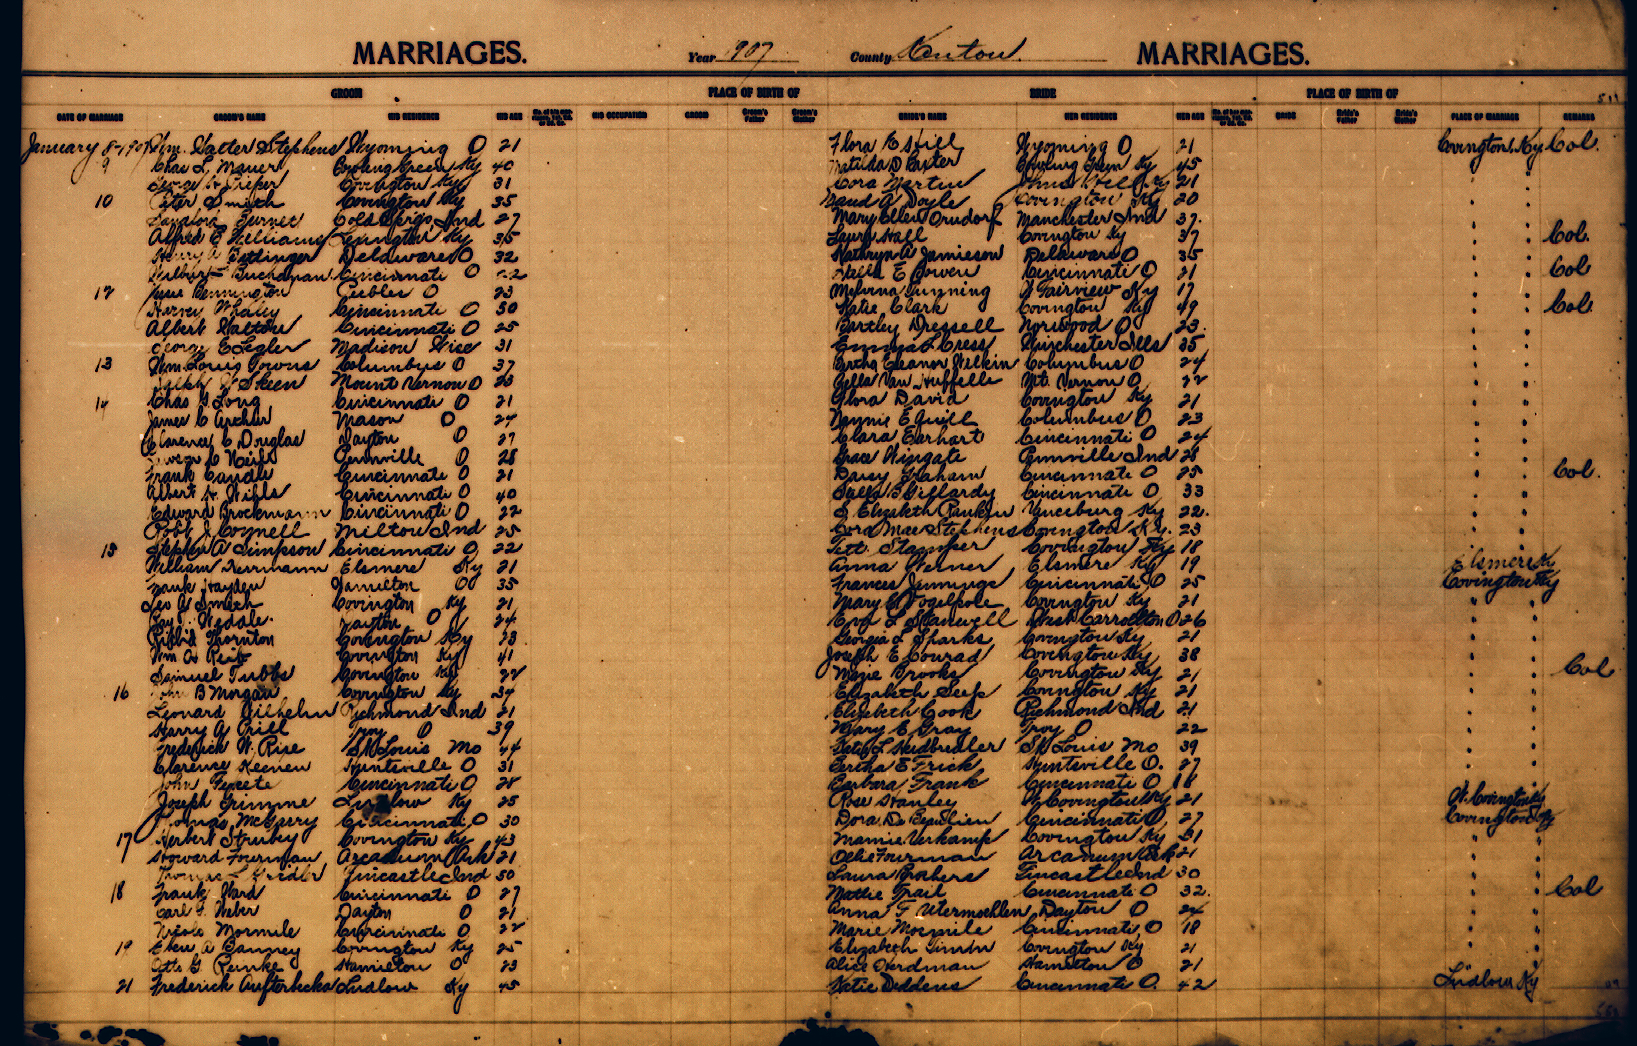 MARRIAGES. Year 1907 County Kenton. MARRIAGES.
GROOM PLACE OF BIRTH OF BRIDE PLACE OF BIRTH OF
DATE OF MARRIAGE GROOM'S NAME HIS RESIDENCE HIS AGE HIS OCCUPATION GROOM Groom's Father Groom's Mother BRIDE'S NAME HER RESIDENCE HER AGE BRIDE Bride's Father Bride's Mother PLACE OF MARRIAGE REMARKS
January 8-1907 Wm. Walter Stephens Wyoming O 21 Flora E Hill Wyoming O 21 Covington, Ky Col.
9 Chas L. Maner Bowling Green Ky 40 Matilda D Carter Bowling Green Ky 45
George H Pieper Covington Ky 31 Cora Martin Ky 21 "
10 Peter Smith Covington Ky 35 Maud A Doyle Covington Ky 20 " "
Sanford Burnet Cold Spgs Ind 27 Mary Ellen Orndorf Manchester Ind 37. " "
Alfred E Williams Lexington Ky 35 Laura Hall Covington Ky 37 " " Col.
Henry A Dettinger Delaware O 32 Kathryn A Jamieson Delaware O 35 " "
Wilbur Buchanan Cincinnati O 22 Stella E Bowen Cincinnati O 21 " " Col
12 Jesse Bennington Peebles O 23 Melvina Gunning Fairview Ky 17 " "
Harvey Whaley Cincinnati O 50 Katie Clark Covington Ky 49 " " Col.
Albert Walton Cincinnati O 25 Bartley Dressell Norwood O 23. " "
George E Legler Madison Wise 31 Emma Cress Winchester Ills 35 " "
13 Wm. Louis Towns Columbus O 37 Bertha Eleanor Wilkin Columbus O 24 " "
Ralph W Skeen Mount Vernon O 23 Zella Van Huffelle Mt. Vernon O 22 " "
14 Chas G. Long Cincinnati O 21 Flora David Covington Ky 21 " "
James C Archer Mason O 27 Nannie E Quill Columbus O 23 " "
Clarence C Douglas Dayton O 27 Clara Earhart Cincinnati O 24 " "
Neift Pennville O 28 Grace Wingate Pennville Ind 28 " "
Frank Caudle Cincinnati O 21 Daisy Graham Cincinnati O 25 " " Col.
Albert H. Cincinnati O 40 Sallie B Giffardy Cincinnati O 33 " "
Edward Brockmann Cincinnati O 22 S. Elizabeth Rankin Vanceburg Ky 22. " "
Robt J Cornell Milton Ind 25 Cora Mae Stephens Covington Ky. 23 " "
15 Stephen A Simpson Cincinnati O 22 Stamper Covington Ky 18 " "
William Herrmann Elsmere Ky 21 Anna Werner Elsmere Ky 19 Elsmere Ky
Frank Hayden Hamilton O 35 Frances Jennings Cincinnati O 25 Covington Ky
Leo J Smith Covington Ky 21 Mary C Vogelpole Covington Ky 21 " "
Roy Dayton O 24 Eva L Stanwell West Carrollton O 26 " "
Thornton Covington Ky 23 Georgia L Sparks Covington Ky 21 " "
Wm A Reib Covington Ky 41 Joseph E Conrad Covington Ky 38 " "
Samuel Tubbs Covington Ky 22 Marie Brooks Covington Ky 21 " " Col
16 John B Morgan Covington Ky 34 Elizabeth Seep Covington Ky 21 " "
Leonard Wilhelm Richmond Ind 21 Elizebeth Cook Richmond Ind 21 " "
Harry A Prill Troy O 39 Mary E Gray Troy O 22 " "
Frederick W. Rise St. Louis Mo 44 Katie L Heidbreder St Louis Mo 39 " "
Clarence Keenen Huntsville O 31 Bertha E Frick Huntsville O. 27 " "
John Fekete Cincinnati O 28 Barbara Frank Cincinnati O 18 " "
Joseph Grimme Ludlow Ky 25 Rose Stanley W Covington Ky 21 W. Covington Ky
Thomas McGarry Cincinnati O 30 Dora De Beaulieu Cincinnati O 27 Covington Ky
17 Herbert Struby Covington Ky 43 Mamie Verkamp Covington Ky 31 " "
Howard Fourman Arcanum Ark 21 Ollie Fourman Arcanum Ark 21 " "
Thomas L Grider Fincastle Ind 50 Laura Brothers Fincastle Ind 30 " "
18 Frank Ward Cincinnati O 27 Mattie Trail Cincinnati O 32. " " Col
Carl F. Weber Dayton O 21 Anna F Utermoehlen Dayton O 24 " "
Nicola Mormile Cincinnati O 22 Marie Mormile Cincinnati O 18 " "
19 Eben A Banney Covington Ky 25 Elizabeth Timm Covington Ky 21 " "
Otto G Reinke Hamilton O 23 Alice Oerdman Hamilton O 21 " "
21 Frederick Aufterheks Ludlow Ky 45 Katie Deddens Cincinnati O. 42 Ludlow Ky